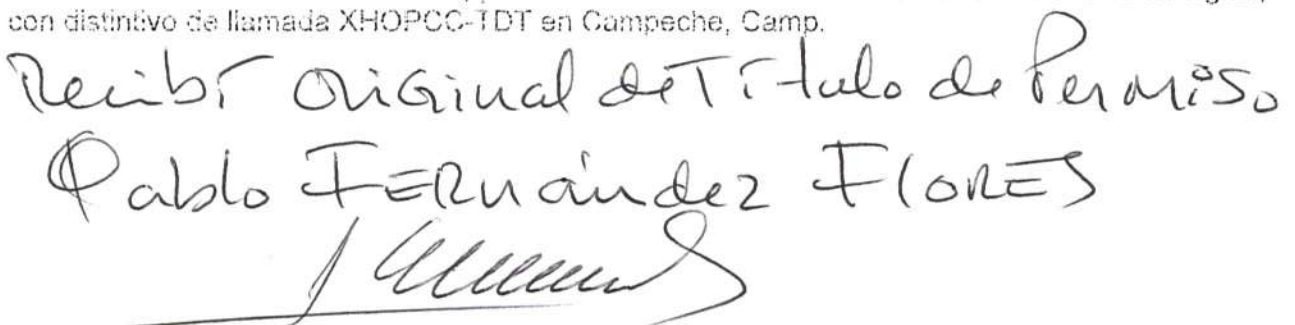 con distintivo de llamada XHOPCC-TDT en Campeche, Camp.
Recibí Original de Título de Permiso
Pablo Fernández Flores